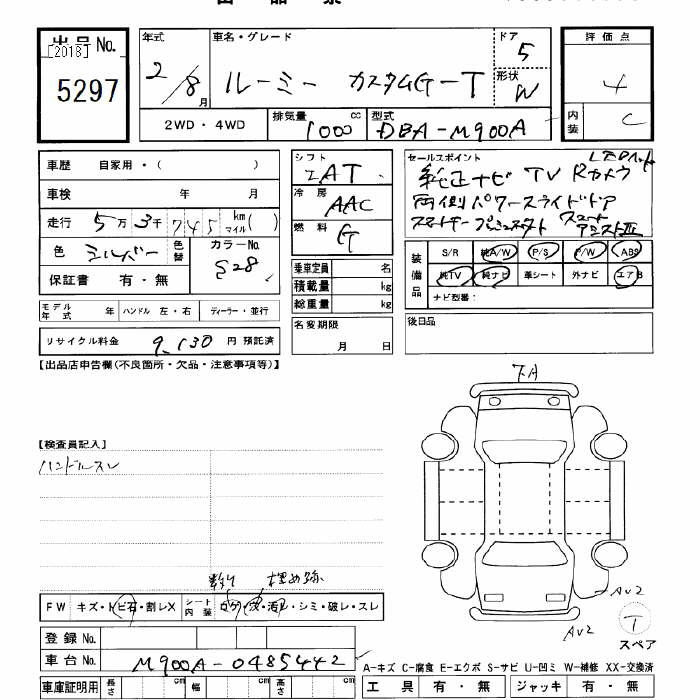 出品票
出品No.
[2018]
5297
年式
2/8月
車名・グレード
ルーミー カスタムG-T
ドア
5
形状
W
評価点
4
内装
C
2WD・4WD
排気量
1000 cc
型式
DBA-M900A
車歴 自家用・( )
車検 年 月
走行 5万3千745 km マイル( )
色 シルバー 色替 カラーNo. S28
保証書 有・無
モデル年式 年 ハンドル 左・右 ディーラー・並行
リサイクル料金 9,130円 預託済
シフト
IAT
冷房
AAC
燃料
G
乗車定員 名
積載量 kg
総重量 kg
名変期限
月 日
セールスポイント
純正ナビ TV Rカメラ
両側パワースライドドア
スマートキー プッシュスタート スマートアシストⅢ
装備品
S/R 純A/W P/S P/W ABS
純TV 純ナビ 革シート 外ナビ エアB
ナビ型番:
後日品
【出品店申告欄(不良箇所・欠品・注意事項等)】
下A
【検査員記入】
ハンドルスレ
埋め跡
FW キズ・トビ石・割レX シート内装 コゲ・穴・汚レ・シミ・破レ・スレ
AU2
AU2
T
スペア
登録No.
車台No. M900A-0485442
車庫証明用 長さ cm 幅 cm 高さ cm
A-キズ C-腐食 E-エクボ S-サビ U-凹ミ W-補修 XX-交換済
工具 有・無 ジャッキ 有・無